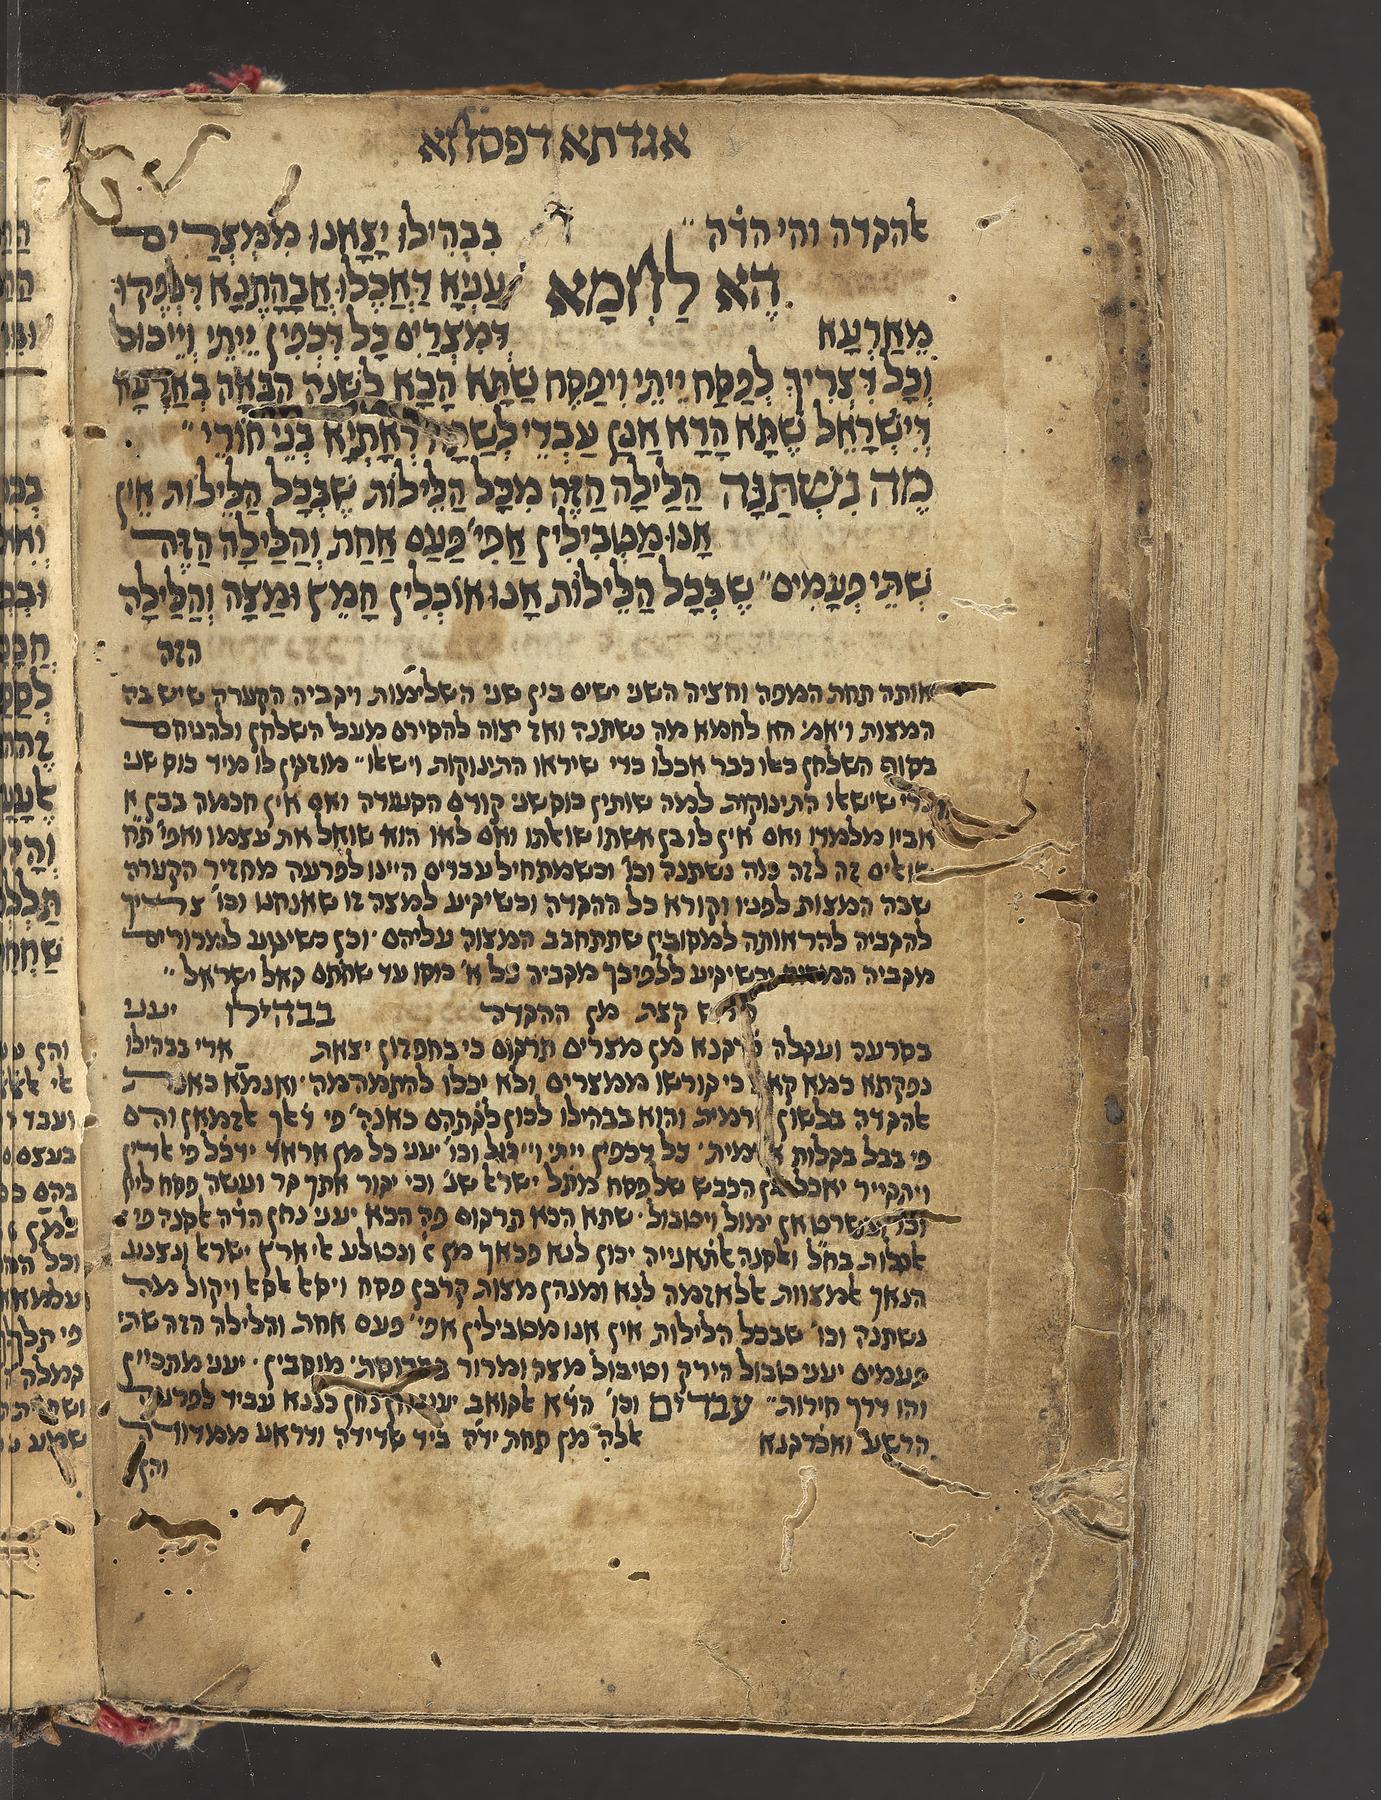 אגדתא דפסחא
אהקדה והי הדֹה " בִּבְהִילוּ יָצָאנוּ מִמִּצְרַיִם
הֶא לַחְמָא עַנְיָא דַּאֲכָלוּ אֲבָהָתַנָא דִּנְפַקוּ
מֵאַרְעָא דְּמִצְרַיִם כָּל דִּכְפִין יֵיתֵי וְיֵיכוּל
וְכָל דִּצְרִיךְ לְפַסַּח יֵיתֵי וִיפַסַּח שַׁתָּא הָכָא לְשָׁנָה הַבָּאָה בְּאַרְעָא
דְיִשְׂרָאֵל שַׁתָּא הָדָא אֲנַן עַבְדֵי לְשַׁתָּא דְאָתְיָא בְּנֵי חוֹרֵי "
מַה נִּשְׁתַּנָּה הַלַּיְלָה הַזֶּה מִכָּל הַלֵּילוֹת שֶׁבְּכָל הַלֵּילוֹת אֵין
אָנוּ מַטְבִּילִין אֲפִי' פַּעַם אַחַת וְהַלַּיְלָה הַזֶּה
שְׁתֵּי פְעָמִים" שֶׁבְּכָל הַלֵּילוֹת אָנוּ אוֹכְלִין חָמֵץ וּמַצָּה וְהַלַּיְלָה
הזה
אותה תחת המפה וחציה השני ישים בין שני השלימות ויגביה הקערה שיש בה
המצות ויאמ' הא לחמא מה נשתנה ואז יצוה להסירם מעל השלחן ולהניחם
בסוף השלחן כאלו כבר אכלו כדי שיראו התינוקות וישאלו" מוזגין לו מיד כוס שני
כדי שישאלו התינוקות למה שותין כוס שני קודם הסעודה ואם אין חכמה בבן
אביו מלמדו ואם אין לו בן אשתו שואלתו ואם לאו הוא שואל את עצמו ואפי' ת"ח
שואלים זה לזה מה נשתנה וכו' וכשמתחיל עבדים היינו לפרעה מחזיר הקערה
שבה המצות לפניו וקורא כל ההקדה וכשיגיע למצה זו שאנחנו וכו' צריך
להגביה להראותה למסובין שתתחבב המצוה עליהם ' וכן כשיגיע למרורים
מגביה המרור וכשיגיע ללפיכך מגביה כל א' כוסו עד שחתם גאל ישראל "
פירוש קצת מן ההקדה בבהילו יעני
בסרעה ועגלה כרגנא מן מצרים תרגום כי בחפזון יצאת ארי בבהילו
נפקתא כמא קאל כי גורשו ממצרים ולא יכלו להתמהמה ' ואנמא כאנת
אהקדה בלשון ארמית והוא בבהילו לכון לגתהם כאנה' פי דֹאך אזמאן והם
פי בבל בקלות ארמית ' כל דכפין ייתי וייכול וכו' יעני כל מן אראד ידכֹל פי אדין
ויתגייר יאכל מן הכבש של פסח מתֹל ישרא' שנ' וכי יגור אתך גר ועשה פסח ליי'
וכו' שרט אן ימול ויטבול ' שתא הכא תרגום פה הכא יעני נחן הדֹה אסנה פי
אגלות ואסנה אתאנייה יכון לנא פכאך מן ונטלע אי ארץ ישרא' ונצנע
הנאך אמצוות אלאזמה לנא ומנהן מצות קרבן פסח ויקול מה
נשתנה וכו' שבכל הלילות אין אנו מטבילין אפי' פעם אחת והלילה הזה שתי
פעמים יעני טבול הירק וטיבול מצה ומרור בחרוסת ' מוסבין ' יעני מתכיין
והו דרך חירות" עבדים וכו' הדֹא אגואב יעני נחן כננא עביד לפרעה
הרשע ואכֹרגנא אלה מן תחת ידה ביד שדידה ודראע ממדודה
והן